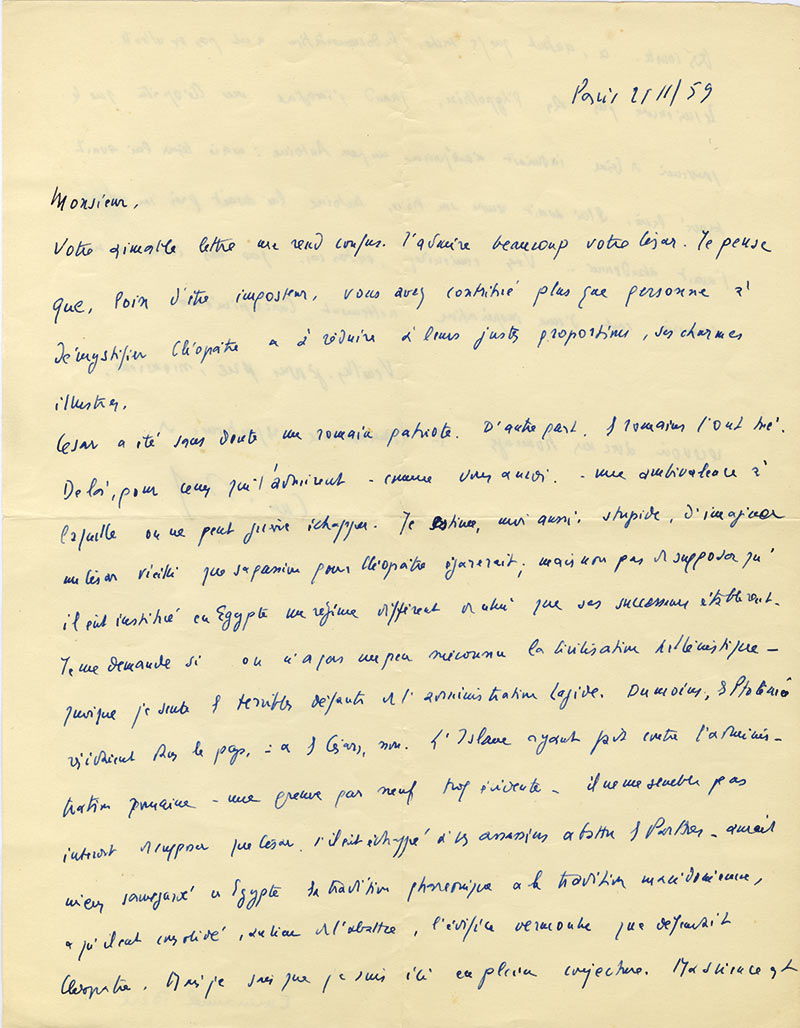 Paris 21/11/59
Monsieur,
Votre aimable lettre me rend confus. J'admire beaucoup votre César. Je pense
que, loin d'être imposteur, vous avez contribué plus que personne à
démystifier Cléopâtre et à réduire à leurs justes proportions, ses charmes
illustres.
César a été sans doute un romain patriote. D'autre part, les romains l'ont tué.
De là, pour ceux qui l'admirent - comme vous et moi - une ambivalence à
laquelle on ne peut guère échapper. Je estime, moi aussi, stupide, d'imaginer
un César vieilli que sa passion pour Cléopâtre égarerait; mais non pas de supposer qu'
il eût institué en Egypte un régime différent de celui que ses successeurs établirent.
Je me demande si on n'a pas un peu méconnu la civilisation hellénistique -
quoique je sente les terribles défauts de l'administration lagide. Du moins, les Ptolémées
résidaient dans le pays, et les Césars, non. L'Islam ayant fait contre l'adminis-
tration romaine - une preuve par neuf trop évidente - il ne me semble pas
interdit de supposer que César, s'il eût échappé à ses assassins et battu les Parthes - aurait
mieux sauvegardé en Egypte la tradition pharaonique et la tradition macédonienne,
et qu'il eût consolidé, au lieu de l'abattre, l'édifice vermoulu que défendait
Cléopatre. Mais je sais que je suis ici en pleine conjecture. Ma science est